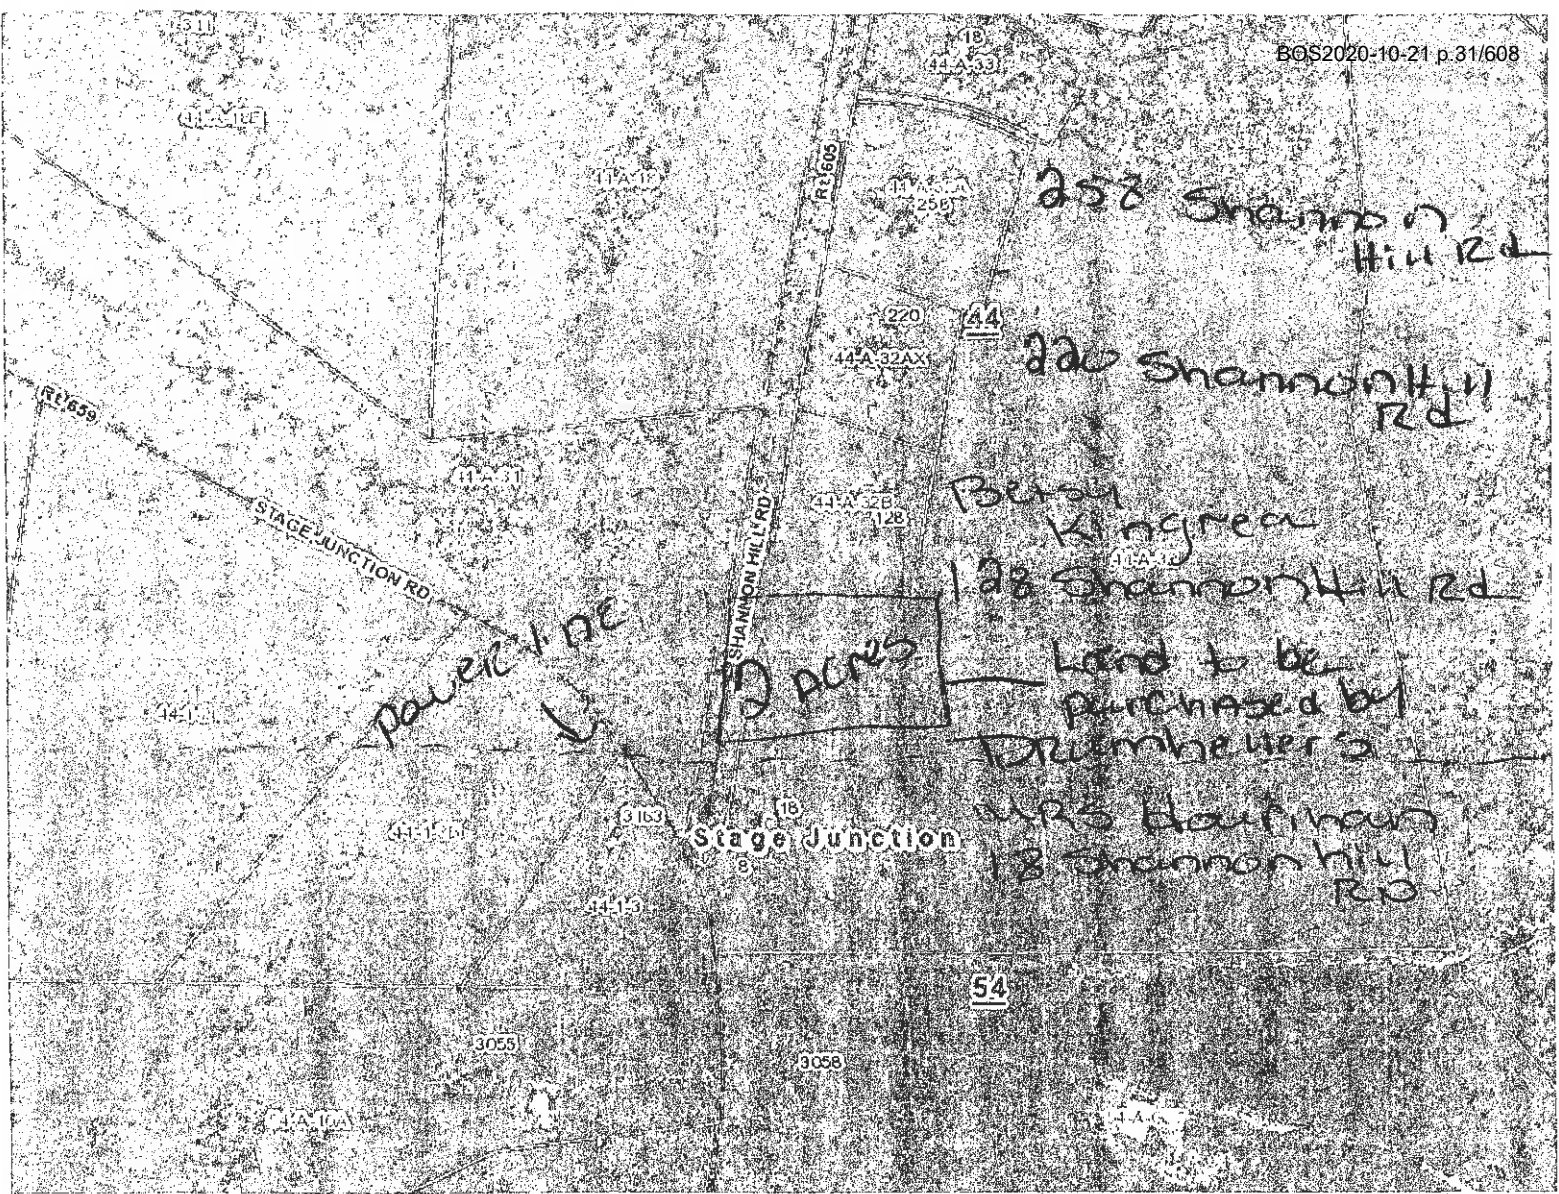 311
18
44-A-33
BOS2020-10-21 p.31/608
Rt 605
258 Shannon
Hill Rd
220
44
44-A-32AX
220 Shannon Hill
Rd
Rt 659
44-A-31
STAGE JUNCTION RD
SHANNON HILL RD
44-A-32B
128
Betsy
Kingrea
128 Shannon Hill Rd
power line
2 Acres
Land to be
purchased by
Drumhellers
3163
18
Stage Junction
8
MRS Hourihan
18 Shannon hill
RD
44-1-3
54
3055
3058